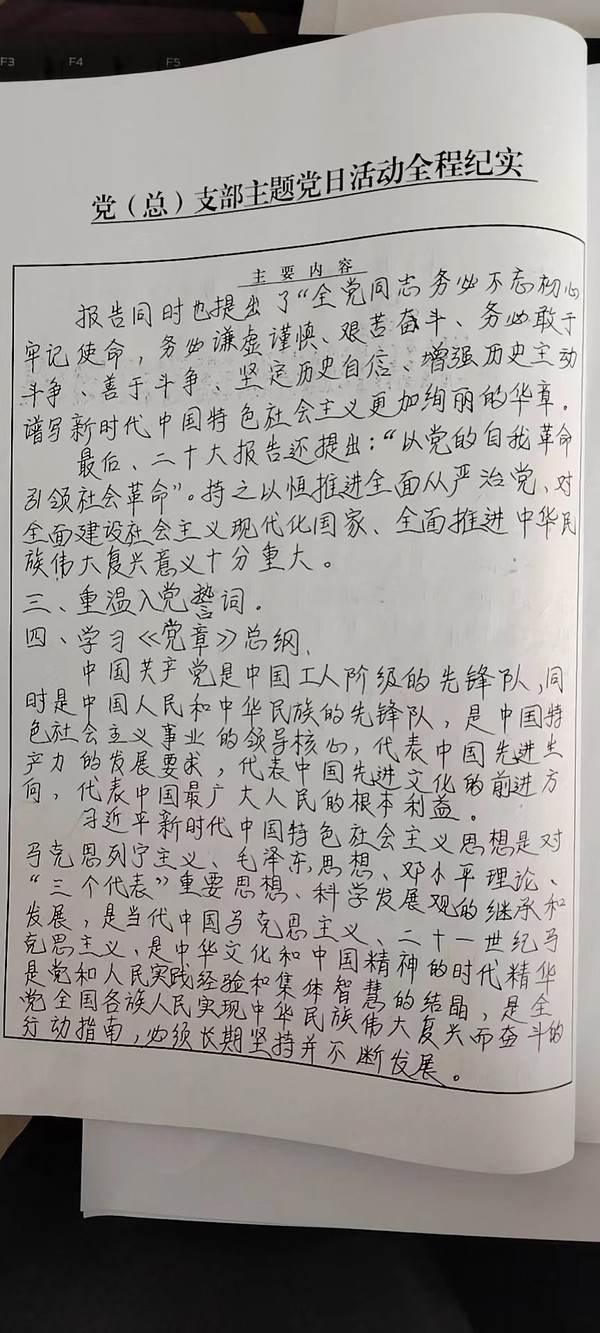 F3
F4
F5
党（总）支部主题党日活动全程纪实
主要内容
报告同时也提出了“全党同志务必不忘初心
牢记使命，务必谦虚谨慎、艰苦奋斗、务必敢于
斗争、善于斗争、坚定历史自信、增强历史主动
谱写新时代中国特色社会主义更加绚丽的华章。
最后、二十大报告还提出：“以党的自我革命
引领社会革命”。持之以恒推进全面从严治党、对
全面建设社会主义现代化国家、全面推进中华民
族伟大复兴意义十分重大。
三、重温入党誓词。
四、学习《党章》总纲、
中国共产党是中国工人阶级的先锋队，同
时是中国人民和中华民族的先锋队，是中国特
色社会主义事业的领导核心，代表中国先进生
产力的发展要求，代表中国先进文化的前进方
向，代表中国最广大人民的根本利益。
习近平新时代中国特色社会主义思想是对
马克思列宁主义、毛泽东思想、邓小平理论、
“三个代表”重要思想、科学发展观的继承和
发展，是当代中国马克思主义、二十一世纪马
克思主义、是中华文化和中国精神的时代精华
是党和人民实践经验和集体智慧的结晶，是全
党全国各族人民实现中华民族伟大复兴而奋斗的
行动指南，必须长期坚持并不断发展。